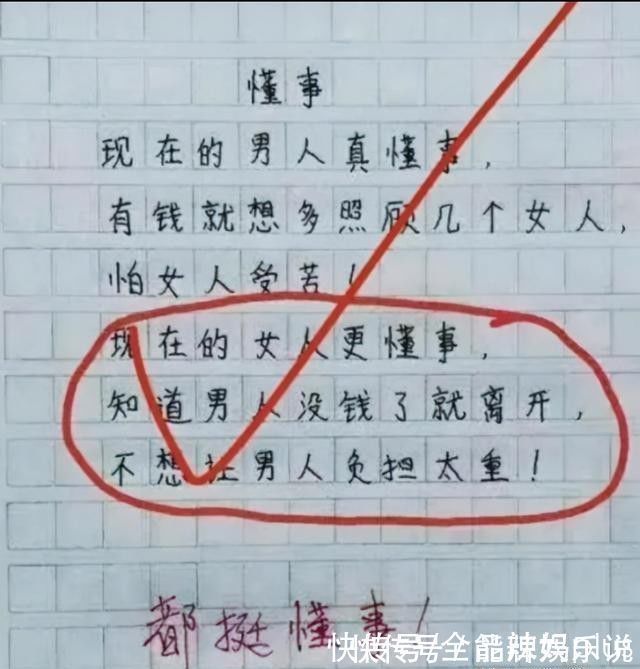 懂事
现在的男人真懂事，
有钱就想多照顾几个女人，
怕女人受苦！
现在的女人更懂事，
知道男人没钱了就离开，
不想男人负担太重！
都挺懂事！
快传号/